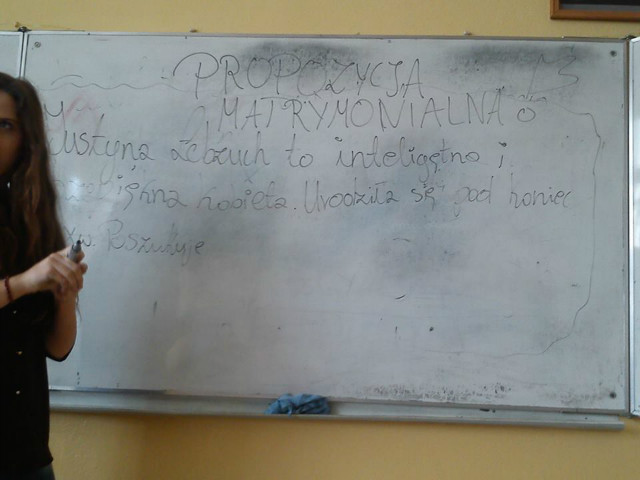 PROPOZYCJA
MATRYMONIALNA
Justyna to inteligętna i
kobieta. Urodziła się pod koniec
w. Poszukuje